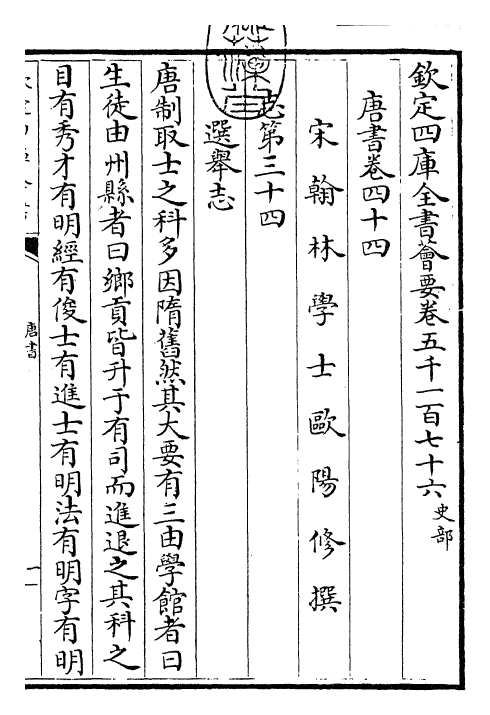 欽定四庫全書薈要卷五千一百七十六 史部
唐書卷四十四
宋翰林學士歐陽修撰
志第三十四
選舉志
唐制取士之科多因隋舊然其大要有三由學館者曰
生徒由州縣者曰鄉貢皆升于有司而進退之其科之
目有秀才有明經有俊士有進士有明法有明字有明
唐書
一